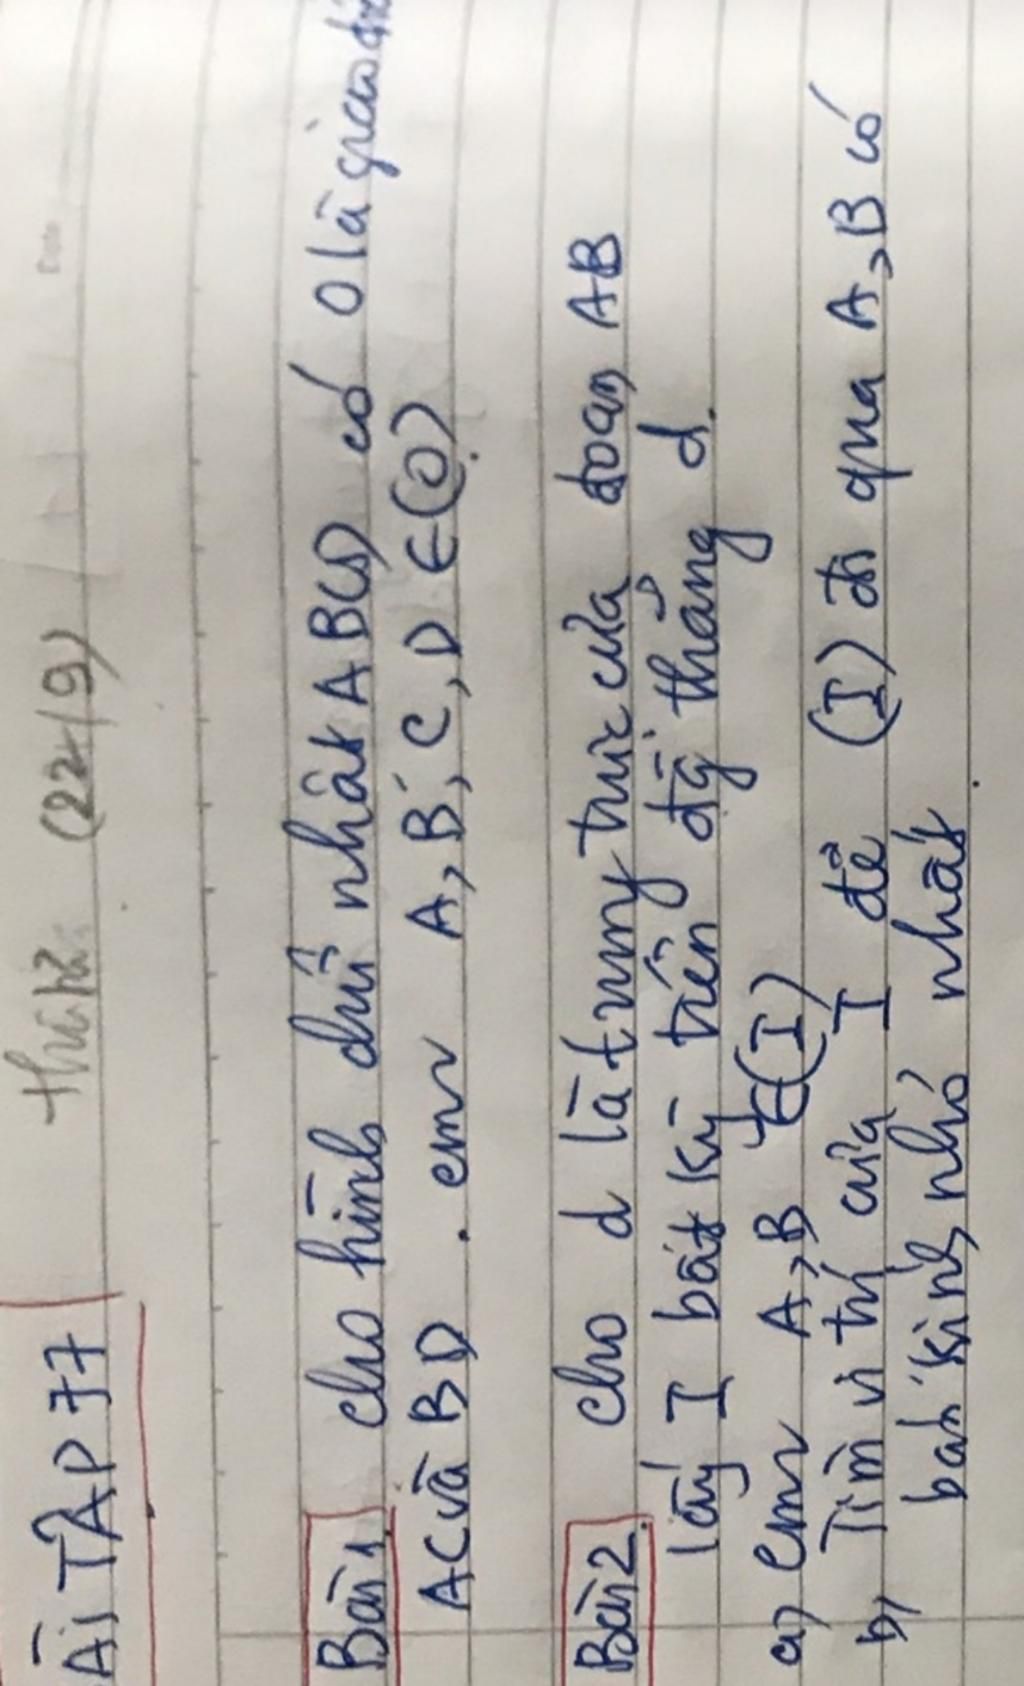 ÀI TẬP 77
(22/9)
Bài 1. Cho hình chữ nhật ABCD có O là giao
AC và BD. cm A, B, C, D ∈ (O)
Bài 2. Cho d là trung trực của đoạn AB
lấy I bất kỳ trên đg thẳng d.
a) cm A, B ∈ (I)
b) Tìm vị trí của I để (I) đi qua A, B có
bán kính nhỏ nhất.